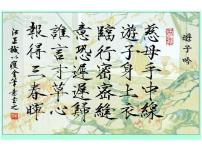 遊子吟
慈母手中線
遊子身上衣
臨行密密縫
意恐遲遲歸
誰言寸草心
報得三春暉